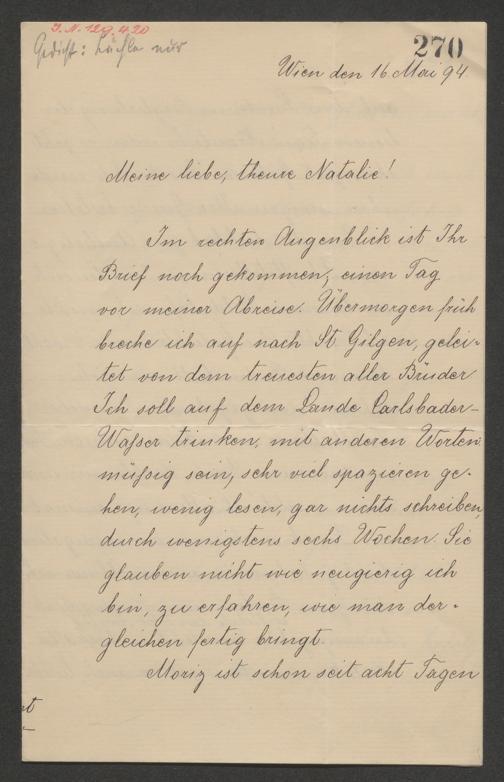 J. N. 129.420
Gedicht: Lächle nur
270
Wien den 16 Mai 94.
Meine liebe, theure Natalie!
Im rechten Augenblick ist Ihr
Brief noch gekommen, einen Tag
vor meiner Abreise. Übermorgen früh
breche ich auf nach St Gilgen, gelei-
tet von dem treuesten aller Brüder
Ich soll auf dem Lande Carlsbader-
Waſser trinken, mit anderen Worten:
müſsig sein, sehr viel spazieren ge-
hen, wenig lesen, gar nichts schreiben,
durch wenigstens sechs Wochen. Sie
glauben nicht wie neugierig ich
bin, zu erfahren, wie man der-
gleichen fertig bringt.
Moriz ist schon seit acht Tagen